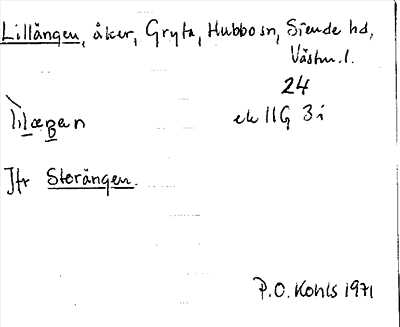 Lillängen, åker, Gryta, Hubbo sn, Siende hd,
Västm. l.
24
ek 11G 3i
Jfr Storängen.
P.O. Kohls 1971